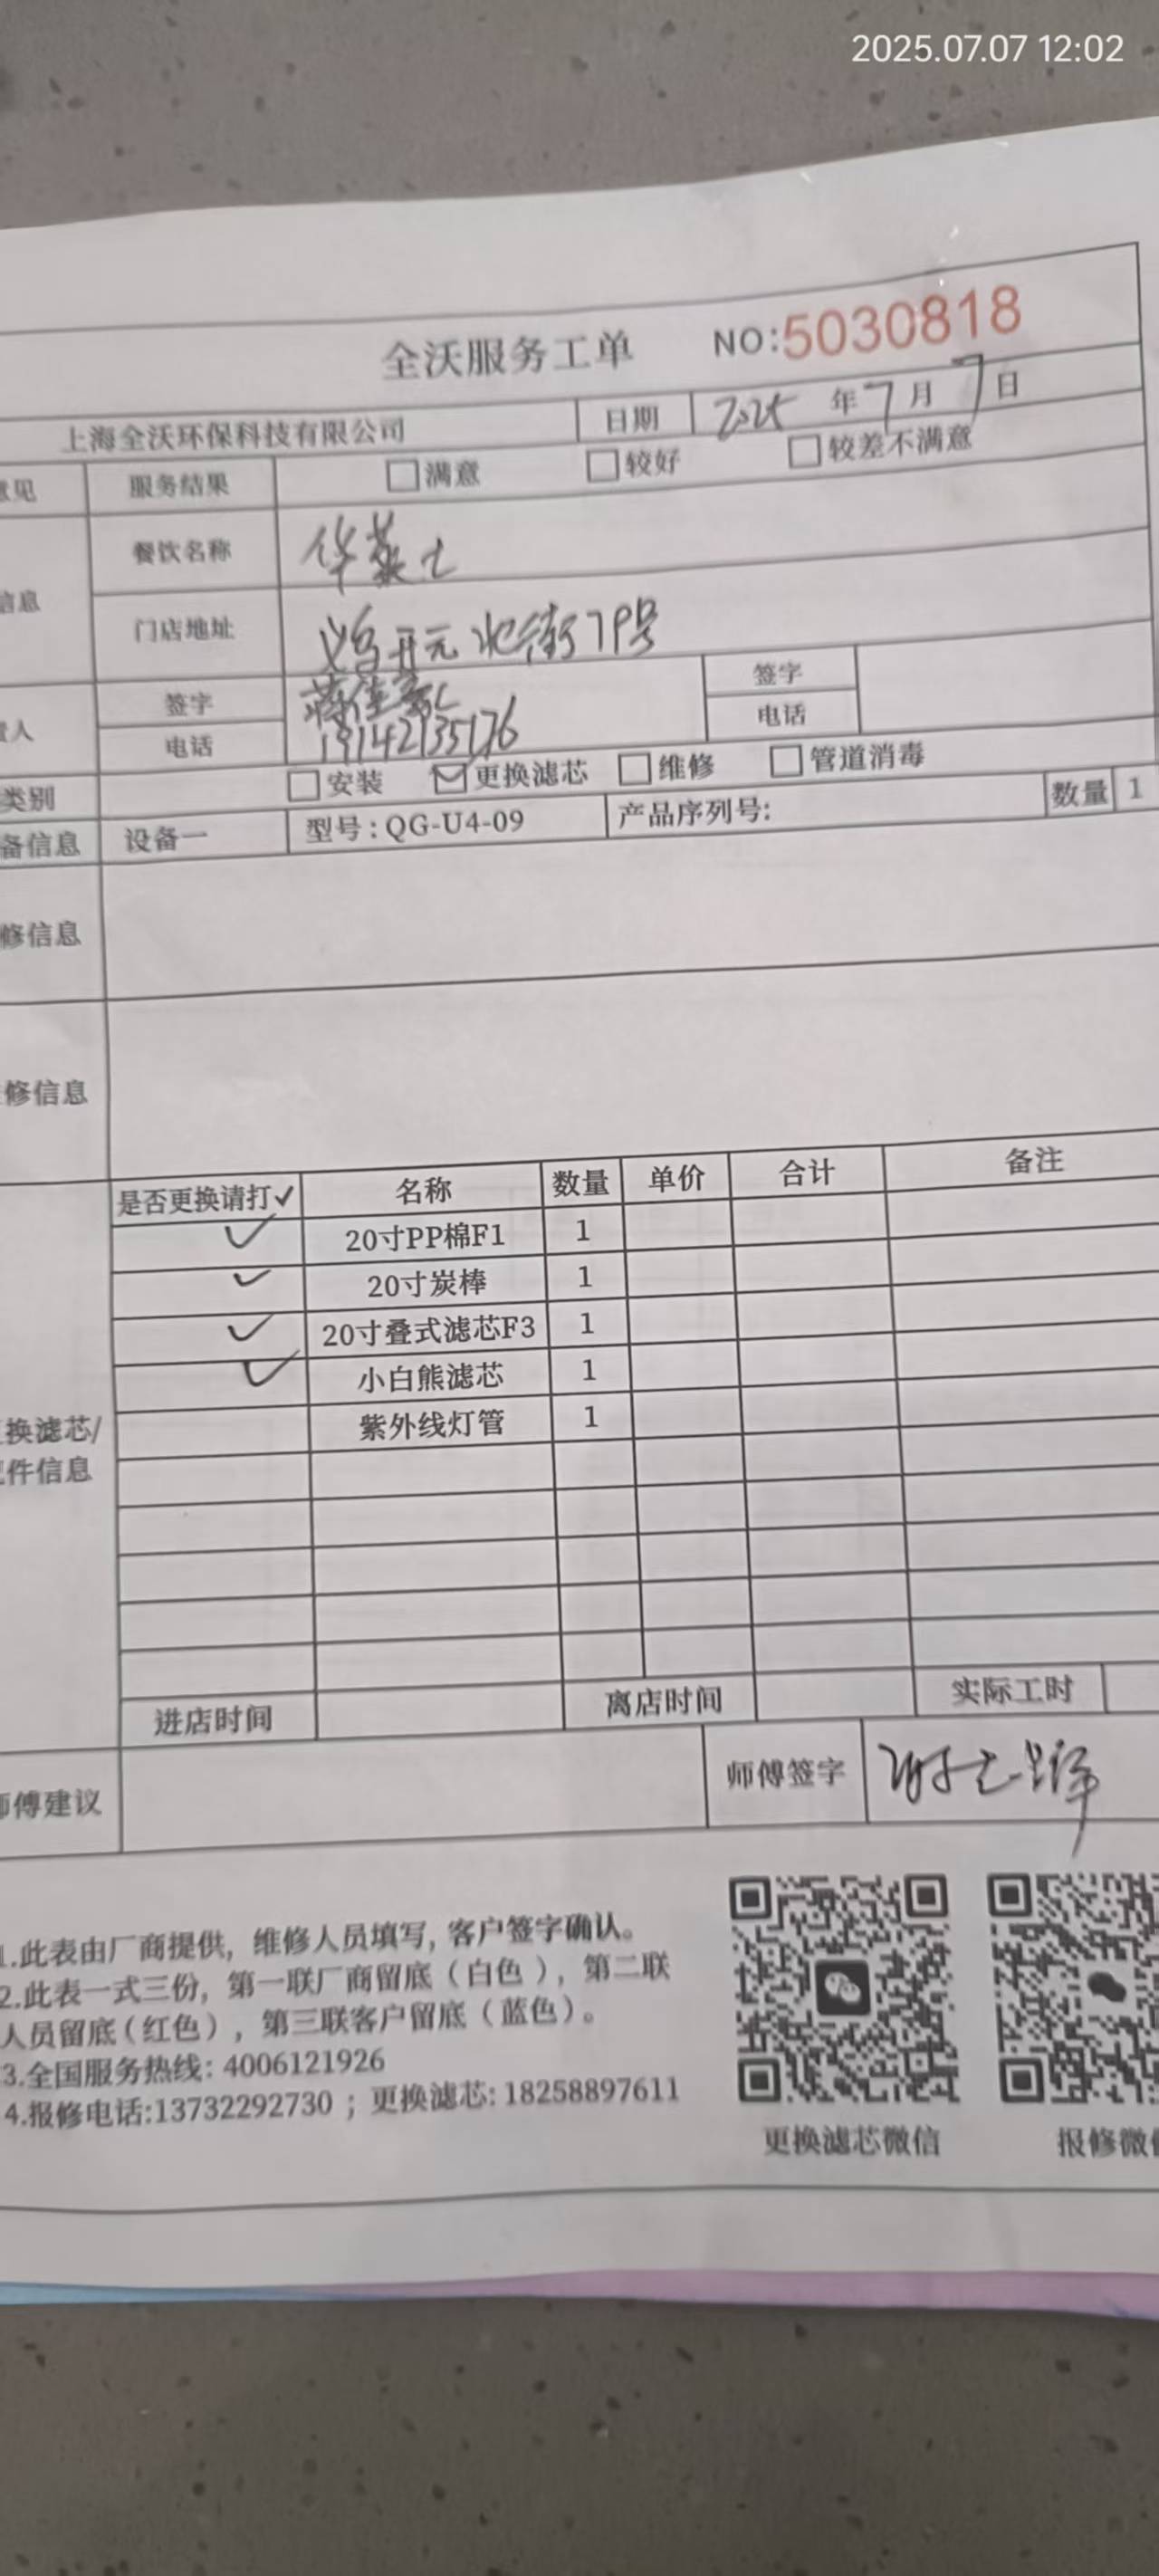 2025.07.07 12:02
全沃服务工单 NO:5030818
上海全沃环保科技有限公司 日期 2025 年 7 月 7 日
意见 服务结果 满意 较好 较差不满意
信息 餐饮名称 华莱士
门店地址 义乌开元北街79号
签字 签字
人 电话 19142935176 电话
类别 安装 更换滤芯 维修 管道消毒
备信息 设备一 型号:QG-U4-09 产品序列号: 数量 1
修信息
修信息
是否更换请打✓ 名称 数量 单价 合计 备注
✓ 20寸PP棉F1 1
✓ 20寸炭棒 1
✓ 20寸叠式滤芯F3 1
✓ 小白熊滤芯 1
紫外线灯管 1
换滤芯/
件信息
进店时间 离店时间 实际工时
师傅建议 师傅签字
1.此表由厂商提供, 维修人员填写, 客户签字确认。
2.此表一式三份, 第一联厂商留底(白色), 第二联
人员留底(红色), 第三联客户留底(蓝色)。
3.全国服务热线: 4006121926
4.报修电话:13732292730 ; 更换滤芯: 18258897611
更换滤芯微信 报修微信